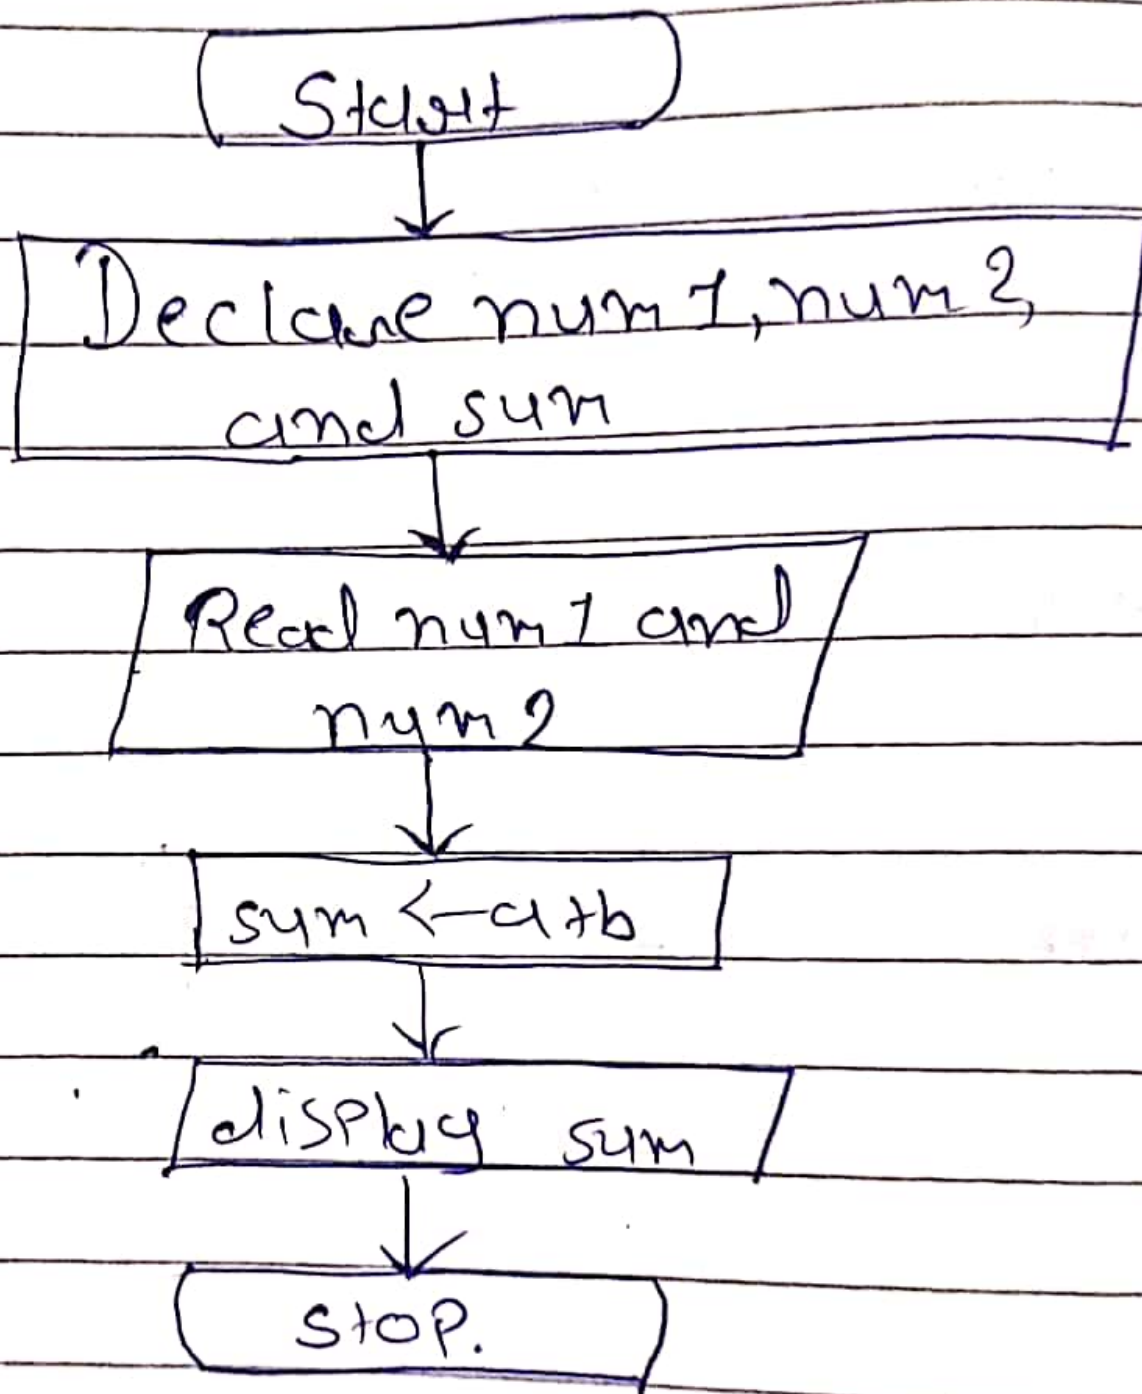 Start
Declare num1, num2,
and sum
Read num1 and
num2
sum <- a+b
display sum
stop.